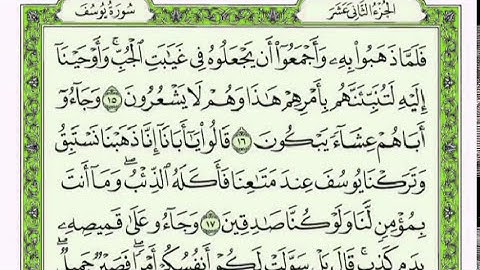 الجزء الثاني عشر
سورة يوسف
فَلَمَّا ذَهَبُوا۟ بِهِۦ وَأَجْمَعُوٓا۟ أَن يَجْعَلُوهُ فِى غَيَـٰبَتِ ٱلْجُبِّ ۚ وَأَوْحَيْنَآ
إِلَيْهِ لَتُنَبِّئَنَّهُم بِأَمْرِهِمْ هَـٰذَا وَهُمْ لَا يَشْعُرُونَ ١٥ وَجَآءُو
أَبَاهُمْ عِشَآءً يَبْكُونَ ١٦ قَالُوا۟ يَـٰٓأَبَانَآ إِنَّا ذَهَبْنَا نَسْتَبِقُ
وَتَرَكْنَا يُوسُفَ عِندَ مَتَـٰعِنَا فَأَكَلَهُ ٱلذِّئْبُ ۖ وَمَآ أَنتَ
بِمُؤْمِنٍ لَّنَا وَلَوْ كُنَّا صَـٰدِقِينَ ١٧ وَجَآءُو عَلَىٰ قَمِيصِهِۦ
بِدَمٍ كَذِبٍ ۚ قَالَ بَلْ سَوَّلَتْ لَكُمْ أَنفُسُكُمْ أَمْرًا ۖ فَصَبْرٌ جَمِيلٌ ۖ